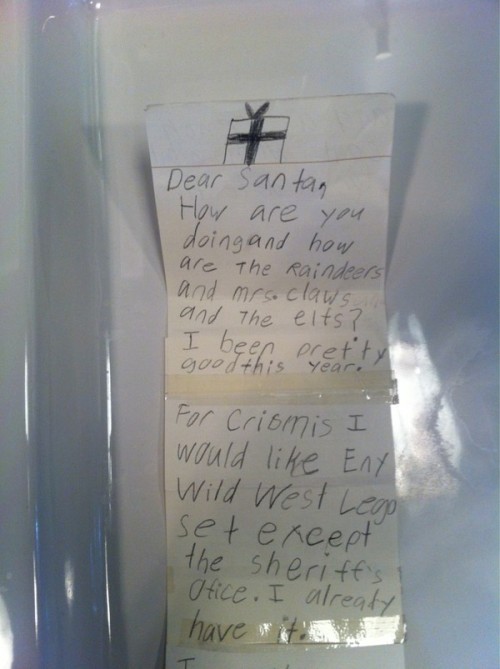 Dear Santa,
How are you
doing and how
are The Raindeers
and mrs. claws
and The elfs?
I been pretty
good this year.
For Crismis I
would like Eny
Wild West Lego
set except
the sheriff's
Ofice. I alreaty
have it.
I